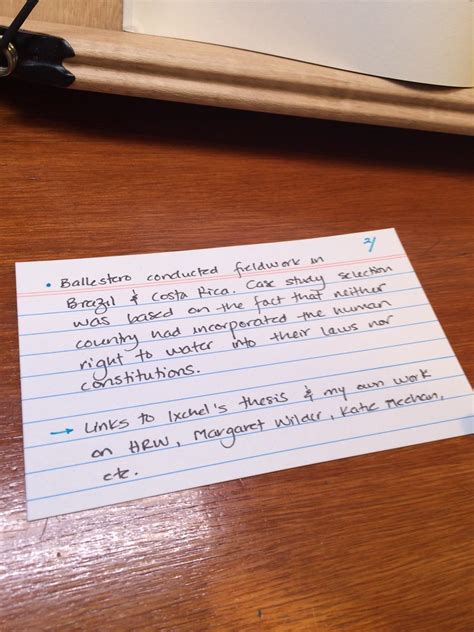 2/
• Ballestero conducted fieldwork in
Brazil & Costa Rica. Case study selection
was based on the fact that neither
country had incorporated the human
right to water into their laws nor
constitutions.
→ Links to Ixchel's thesis & my own work
on HRW, Margaret Wilder, Katie Meehan,
etc.